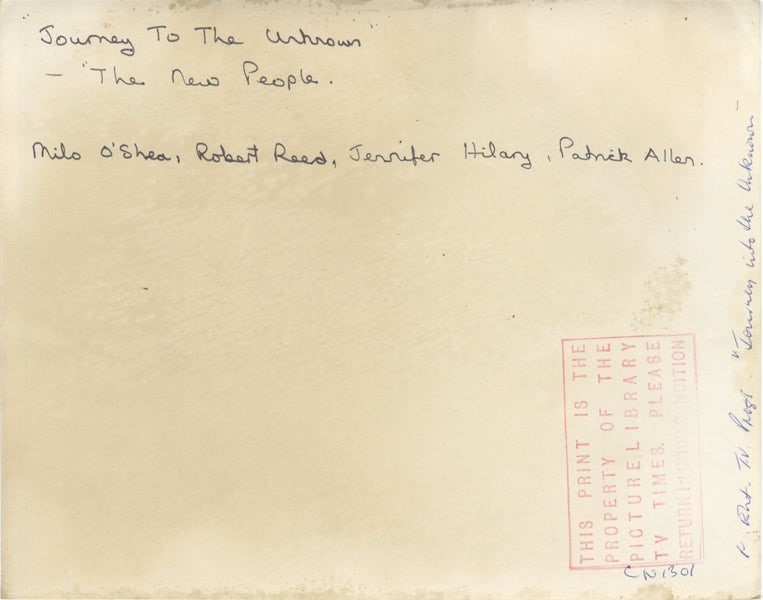 Journey To The Unknown
- "The New People.
Milo O'Shea, Robert Reed, Jennifer Hilary, Patrick Allen.
THIS PRINT IS THE
PROPERTY OF THE
PICTURE LIBRARY
TV TIMES. PLEASE
RETURN IN GOOD CONDITION
CN 1301
TV. Progs. "Journey into the Unknown-